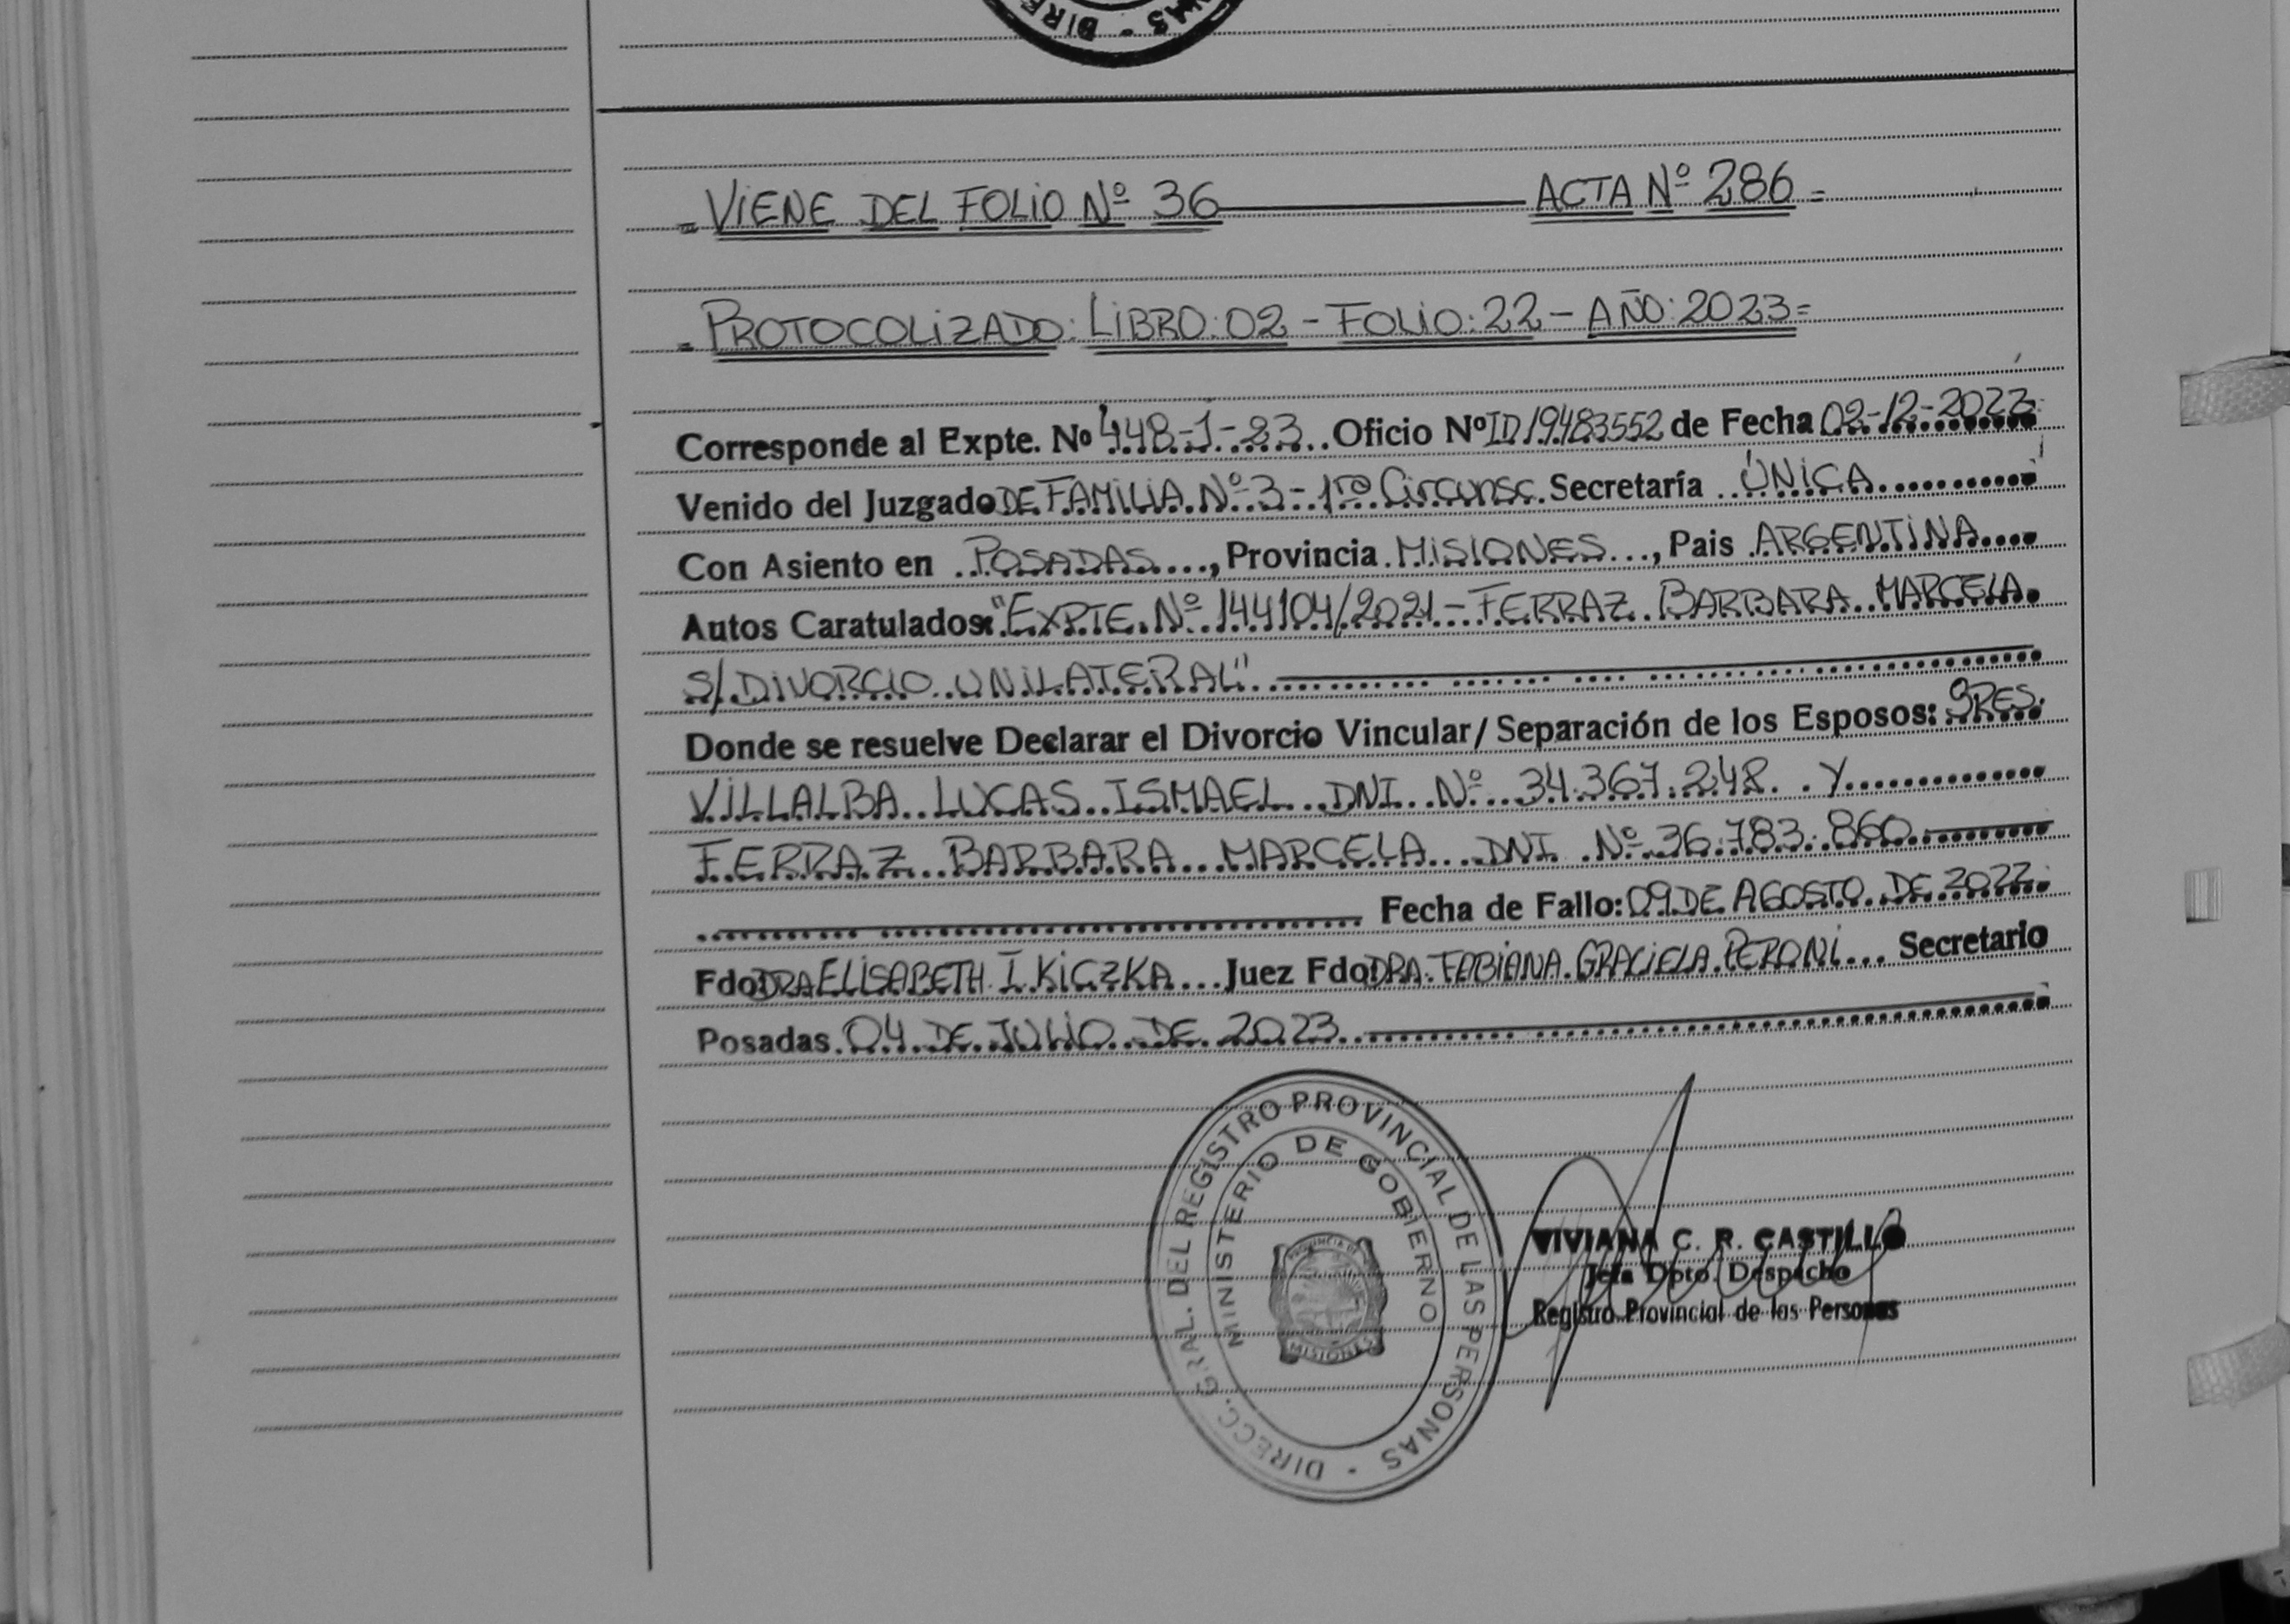 DIRE - NAS
= VIENE DEL FOLIO Nº 36 ACTA Nº 286 =
= PROTOCOLIZADO: LIBRO: 02 - FOLIO: 22 - AÑO: 2023 =
Corresponde al Expte. Nº 448-J-23 Oficio Nº ID 19483552 de Fecha 02-12-2022
Venido del Juzgado DE FAMILIA Nº 3 - 1ra Circunsc. Secretaría ÚNICA
Con Asiento en POSADAS, Provincia MISIONES, Pais ARGENTINA
Autos Caratulados: "EXPTE. Nº 144104/2021 - FERRAZ BARBARA MARCELA
S/ DIVORCIO UNILATERAL"
Donde se resuelve Declarar el Divorcio Vincular/ Separación de los Esposos: SRES.
VILLALBA LUCAS ISMAEL DNI Nº 34.367.248 Y
FERRAZ BARBARA MARCELA DNI Nº 36.783.860
Fecha de Fallo: 09 DE AGOSTO DE 2022
Fdo DRA ELISABETH I. KICZKA Juez Fdo DRA. FABIANA GRACIELA PERONI Secretario
Posadas 04 DE JULIO DE 2023
DIRECC. GRAL. DEL REGISTRO PROVINCIAL DE LAS PERSONAS -
MINISTERIO DE GOBIERNO
PROVINCIA DE
MISIONES
VIVIANA C. R. CASTILLO
Jefa Dpto. Despacho
Registro Provincial de las Personas